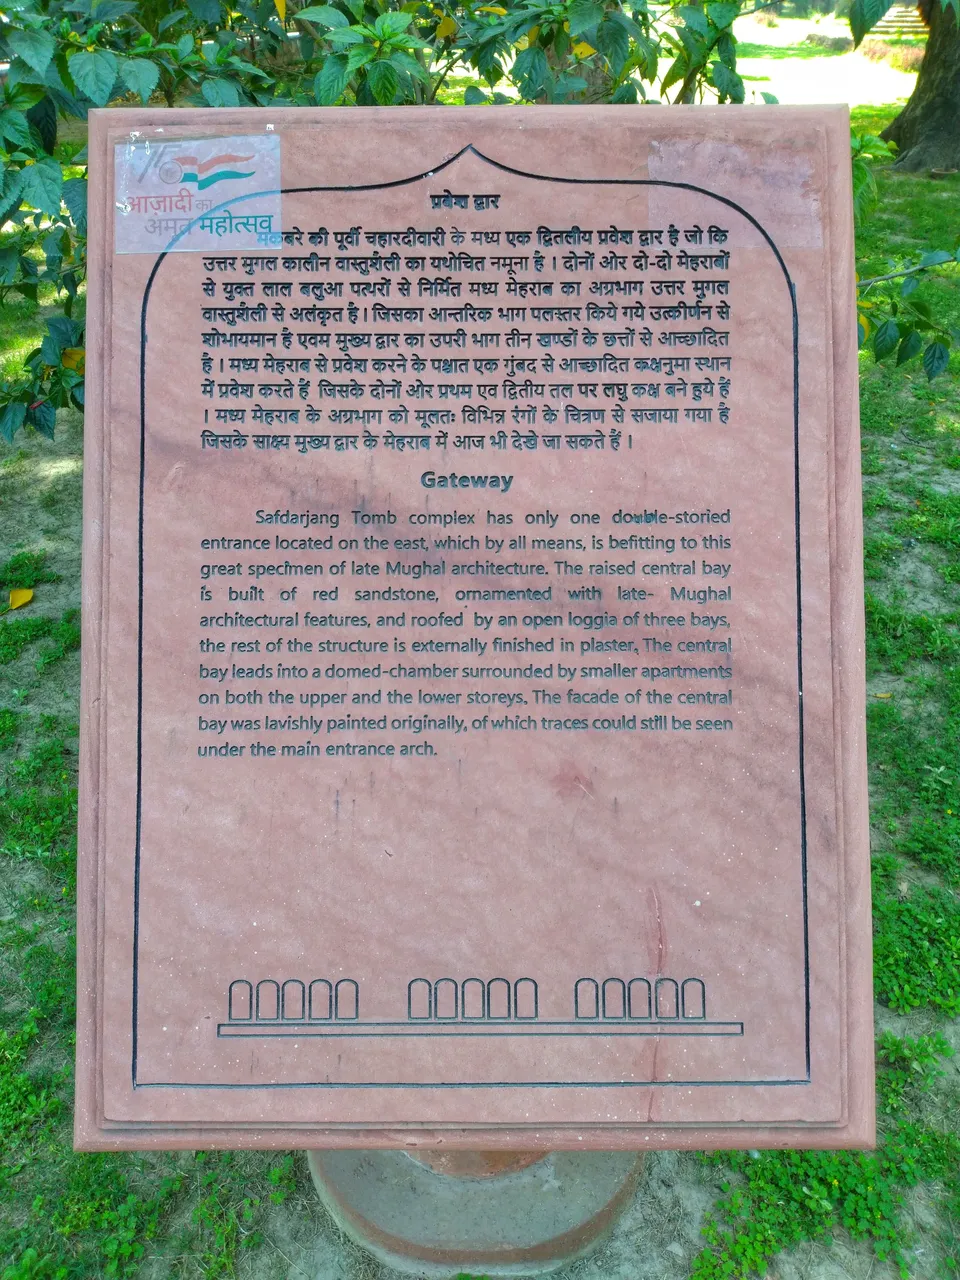 75
आज़ादी का
अमृत महोत्सव
प्रवेश द्वार
मकबरे की पूर्वी चहारदीवारी के मध्य एक द्वितलीय प्रवेश द्वार है जो कि
उत्तर मुगल कालीन वास्तुशैली का यथोचित नमूना है । दोनों ओर दो-दो मेहराबों
से युक्त लाल बलुआ पत्थरों से निर्मित मध्य मेहराब का अग्रभाग उत्तर मुगल
वास्तुशैली से अलंकृत है । जिसका आन्तरिक भाग पलस्तर किये गये उत्कीर्णन से
शोभायमान है एवम मुख्य द्वार का उपरी भाग तीन खण्डों के छत्तों से आच्छादित
है । मध्य मेहराब से प्रवेश करने के पश्चात एक गुंबद से आच्छादित कक्षनुमा स्थान
में प्रवेश करते हैं जिसके दोनों ओर प्रथम एव द्वितीय तल पर लघु कक्ष बने हुये हैं
। मध्य मेहराब के अग्रभाग को मूलतः विभिन्न रंगों के चित्रण से सजाया गया है
जिसके साक्ष्य मुख्य द्वार के मेहराब में आज भी देखे जा सकते हैं ।
Gateway
Safdarjang Tomb complex has only one double-storied
entrance located on the east, which by all means, is befitting to this
great specimen of late Mughal architecture. The raised central bay
is built of red sandstone, ornamented with late- Mughal
architectural features, and roofed by an open loggia of three bays,
the rest of the structure is externally finished in plaster. The central
bay leads into a domed-chamber surrounded by smaller apartments
on both the upper and the lower storeys. The facade of the central
bay was lavishly painted originally, of which traces could still be seen
under the main entrance arch.